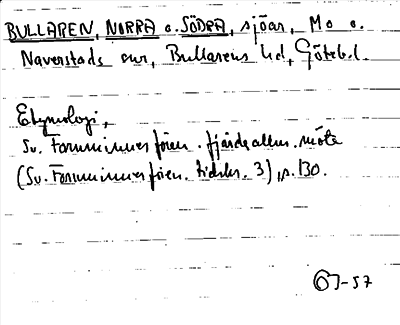 BULLAREN, NORRA o. SÖDRA, sjöar, Mo o.
Naverstads snr, Bullarens hd, Göteb. l.
Etymologi,
Sv. Fornminnesfören. fjärde allm. möte
(Sv. Fornminnesfören. tidskr. 3), s. 130.
OJ-57